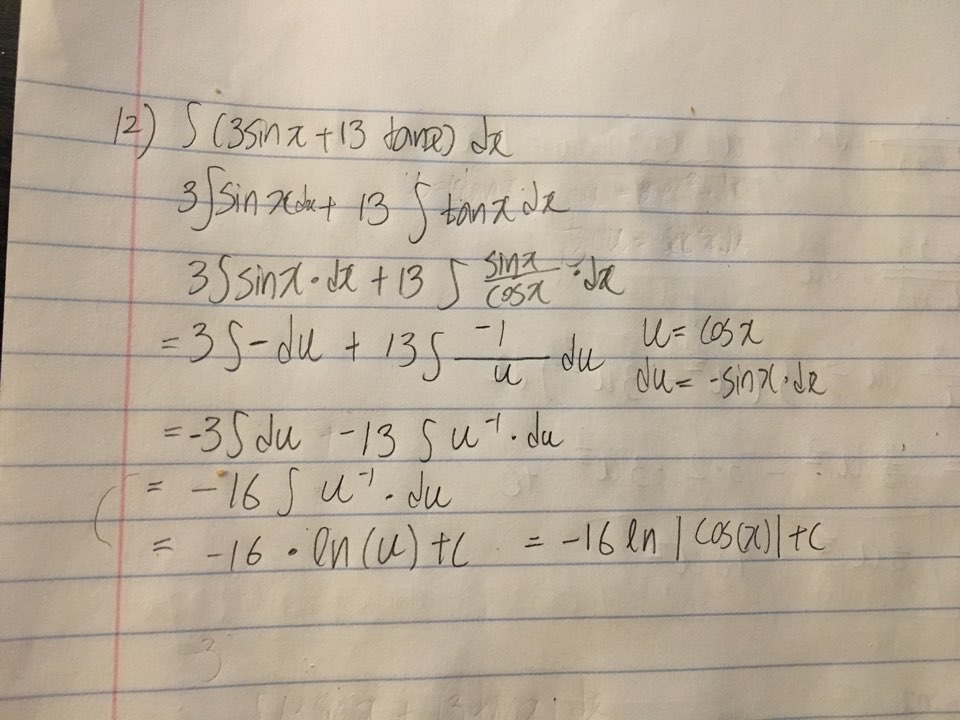 12) ∫ (3sinx + 13 tanx) dx
3∫sinxdx+ 13 ∫ tanx dx
3∫sinx·dx + 13 ∫ sinx/cosx · dx
= 3∫-du + 13∫ -1/u du u = cosx
du = -sinx·dx
= -3∫du -13 ∫u⁻¹·du
= -16 ∫ u⁻¹·du
= -16 · ln(u) +C = -16 ln |cos(x)| +C
3